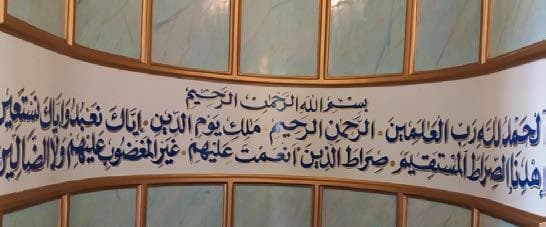 بِسْمِ اللهِ الرَّحْمٰنِ الرَّحِيْمِ
اَلْحَمْدُ لِلّٰهِ رَبِّ الْعٰلَمِيْنَ ۞ الرَّحْمٰنِ الرَّحِيْمِ مٰلِكِ يَوْمِ الدِّيْنِ ۞ اِيَّاكَ نَعْبُدُ وَاِيَّاكَ نَسْتَعِيْنُ
اِهْدِنَا الصِّرَاطَ الْمُسْتَقِيْمَ ۞ صِرَاطَ الَّذِيْنَ اَنْعَمْتَ عَلَيْهِمْ ۞ غَيْرِ الْمَغْضُوْبِ عَلَيْهِمْ وَلَا الضَّالِّيْنَ